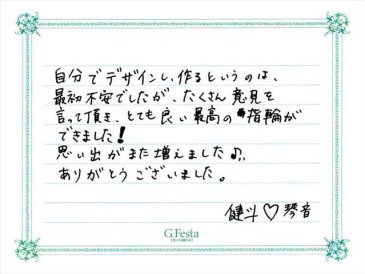 自分でデザインし、作るというのは、
最初不安でしたが、たくさん意見を
言って頂き、とても良い最高の指輪が
できました!
思い出がまた増えました♪
ありがとうございました。
健斗♡琴音
G.Festa
DIAMOND